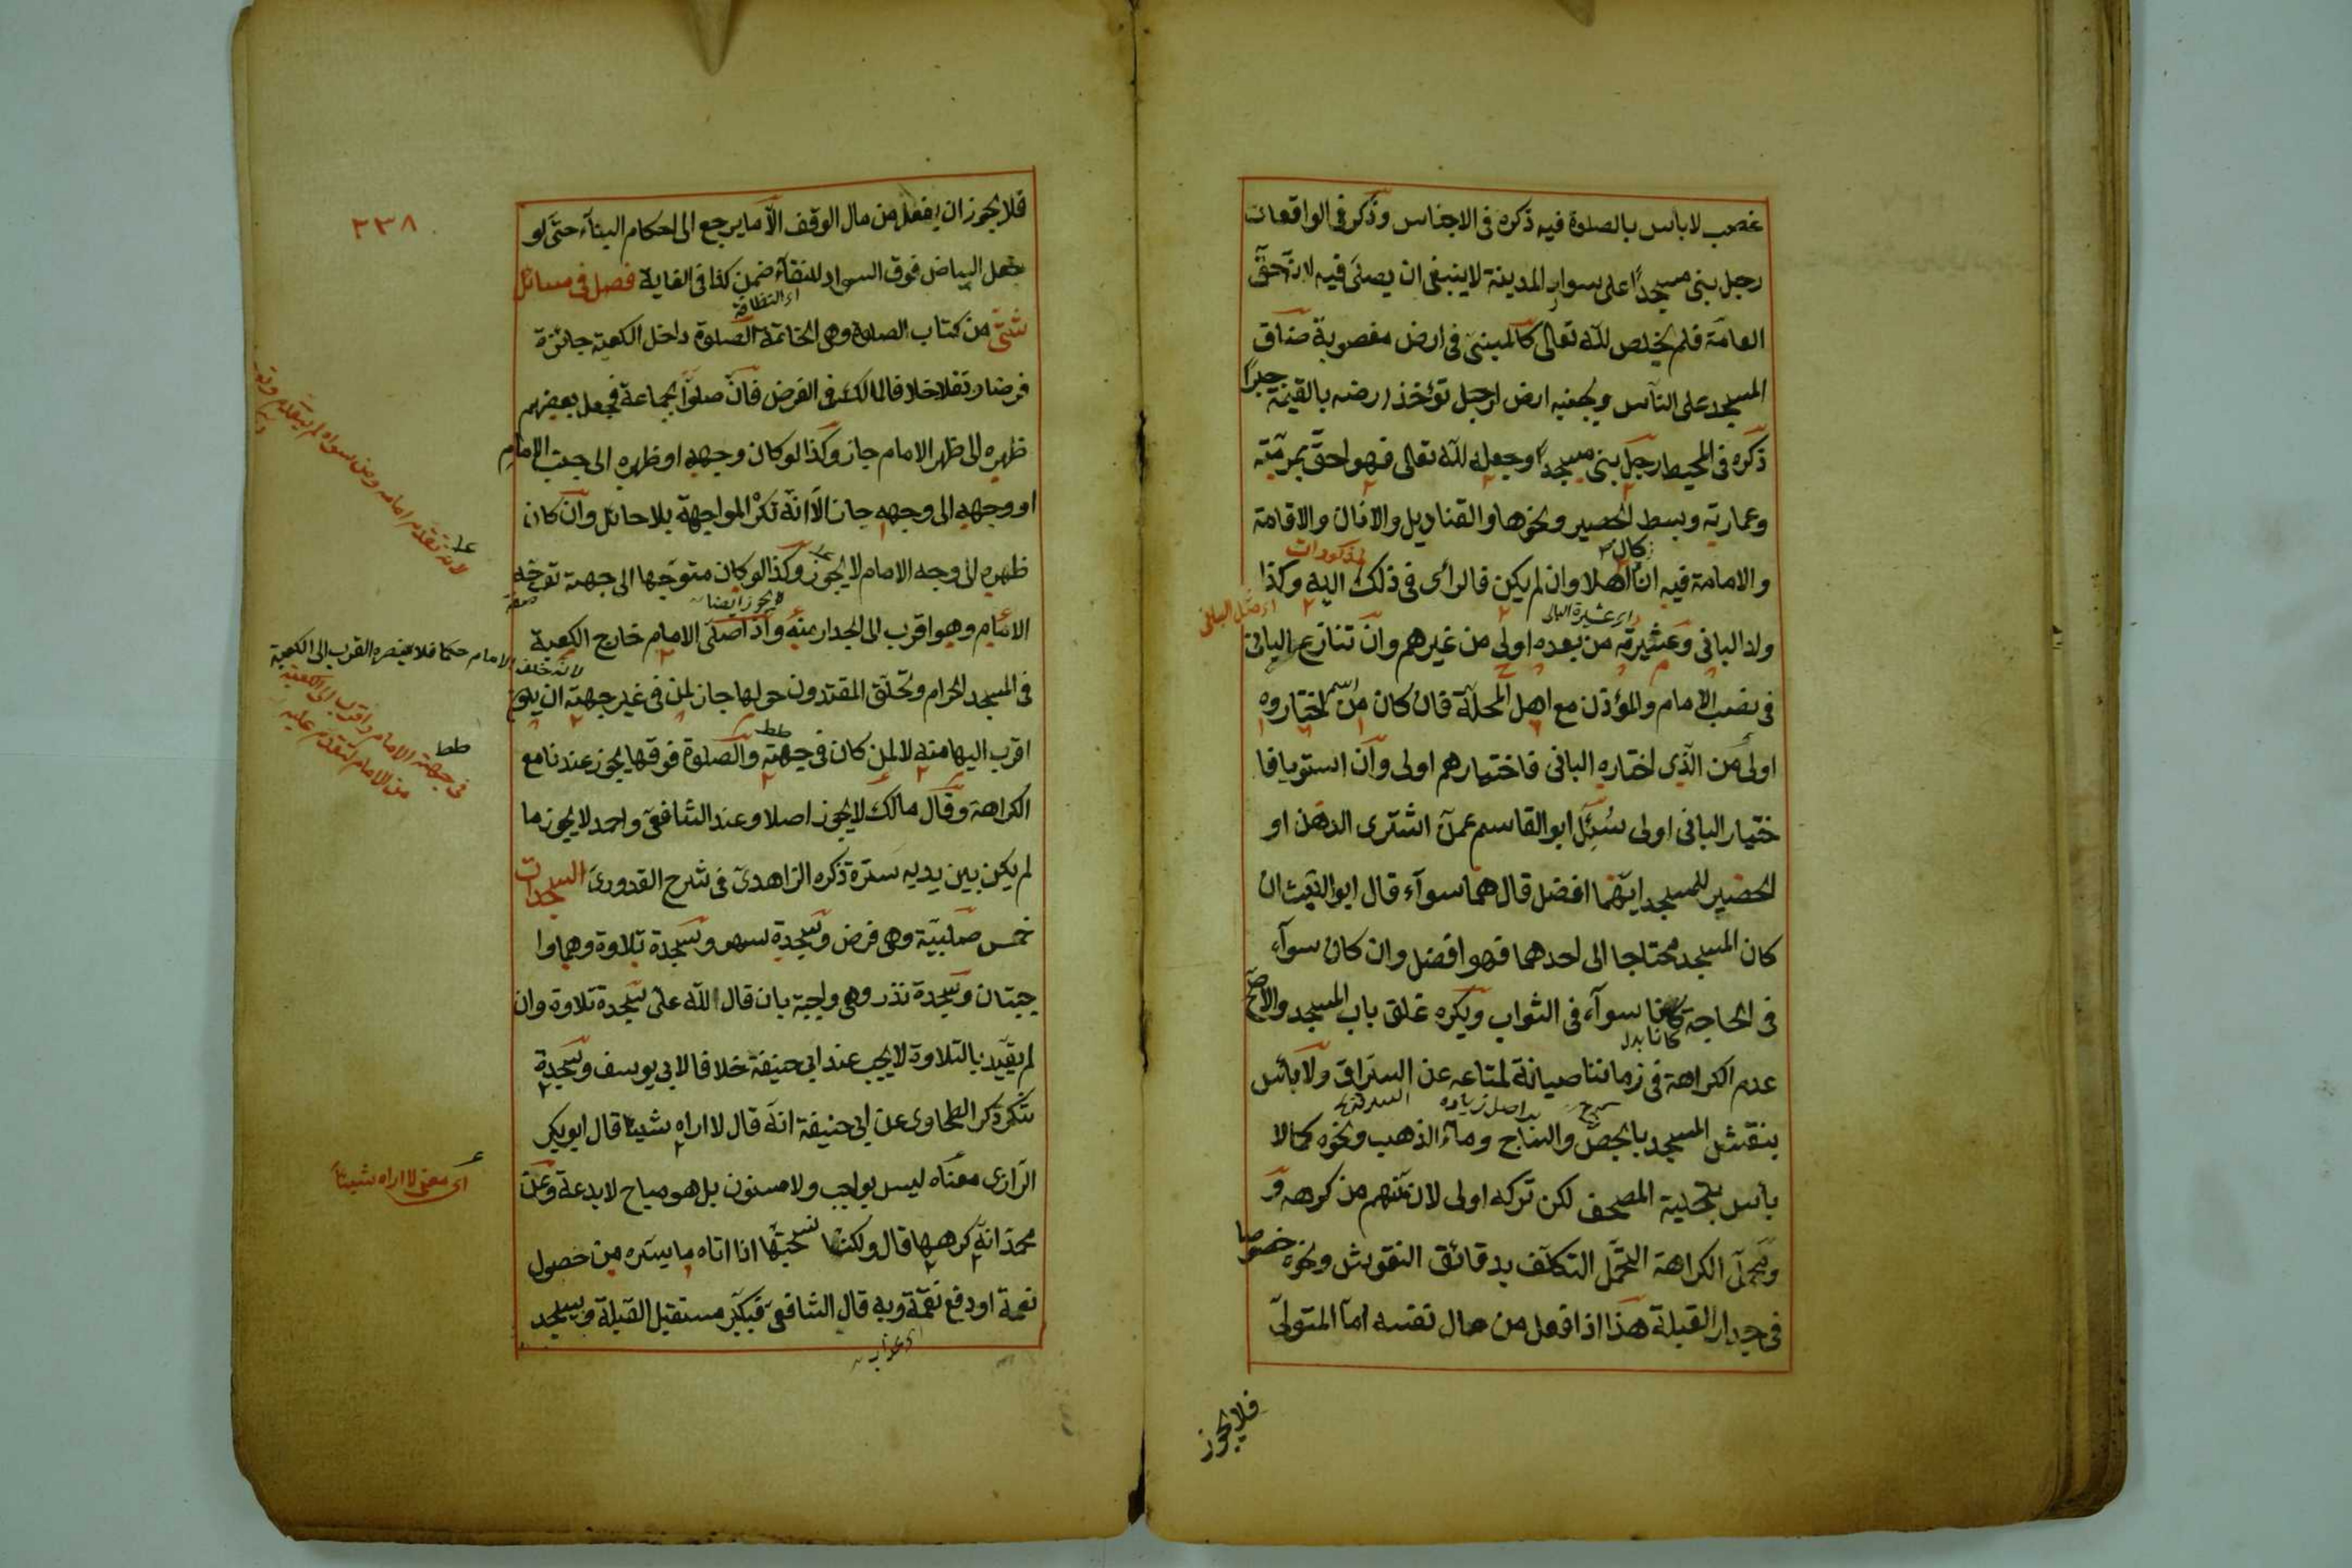 غصب لا باس بالصلوة فيه ذكره فى الاجناس وذكر فى الواقعات
رجل بنى مسجدا على سوار المدينة لا ينبغى ان يصلى فيه لانه حق
العامة فلم يخلص لله تعالى كالمبنى فى ارض مغصوبة ضاق
المسجد على الناس وبجنبه ارض لرجل تؤخذ ارضه بالقيمة جبرا
ذكره فى المحيط رجل بنى مسجدا وجعله لله تعالى فهو احق بمرمته
وعمارته وبسط الحصير ونحوها والقناديل والاذان والاقامة
والامامة فيه ان كان اهلا وان لم يكن فالراى فى ذلك اليه وكذا
المذكورات
ولد البانى وعشيرته من بعده اولى من غيرهم وان تنازع البانى
اى عشيرة البانى
فى نصب الامام والمؤذن مع اهل المحلة فان كان من اختاروه
اولى من الذى اختاره البانى فاختيارهم اولى وان استويا فا
ختيار البانى اولى سئل ابو القاسم عمن اشترى الدهن او
الحصير للمسجد ايهما افضل قال هما سوآء قال ابو الليث ان
كان المسجد محتاجا الى احدهما فهو افضل وان كان سوآء
فى الحاجة كانا سوآء فى الثواب ويكره غلق باب المسجد والاصح
كانا بدل
عدم الكراهة فى زماننا صيانة لمتاعه عن السراق ولا بأس
بنقش المسجد بالجص والساج وماء الذهب ونحوه كما لا
باس بتحلية المصحف لكن تركه اولى لان منهم من كرهه و
ومحمل الكراهة التكلف بدقائق النقوش ونحوه خصوصا
فى جدار القبلة هذا اذا فعل من مال نفسه اما المتولى
فلا يجوز
٢٣٨
فلا يجوز ان يفعل من مال الوقف الا ما يرجع الى احكام البناء حتى لو
جعل البياض فوق السواد للنقاء ضمن كذا فى الغاية فصل فى مسائل
اى النظافة
شتى من كتاب الصلوة وهى الخاتمة الصلوة داخل الكعبة جائزة
فرضا ونفلا خلافا لمالك فى الفرض فان صلوا بجماعة فجعل بعضهم
ظهره الى ظهر الامام جاز وكذا لو كان وجهه او ظهره الى جنب الامام
او وجهه الى وجهه جاز الا انه تكره المواجهة بلا حائل وان كان
ظهره الى وجه الامام لا يجوز وكذا لو كان متوجها الى جهة توجه
لا يجوز ايضا
الامام وهو اقرب الى الجدار منه واذا صلى الامام خارج الكعبة
فى المسجد الحرام وتحلق المقتدون حولها جاز لمن فى غير جهته ان يكون
اقرب اليها منه لا لمن كان فى جهته والصلوة فوقها يجوز عندنا مع
الكراهة وقال مالك لا يجوز اصلا وعند الشافعى واحمد لا يجوز ما
لم يكن بين يديه سترة ذكره الزاهدى فى شرح القدورى السجدات
خمس صلبية وهى فرض وسجدة سهو وسجدة تلاوة وهما وا
جبتان وسجدة نذر وهى واجبة بان قال لله على سجدة تلاوة وان
لم يقيد بالتلاوة لا يجب عند ابى حنيفة خلافا لابى يوسف وسجدة
شكر ذكر الطحاوى عن ابى حنيفة انه قال لا اراه شيئا قال ابو بكر
الرازى معناه ليس بواجب ولا مسنون بل هو مباح لا بدعة وعن
محمد انه كرهها قال ولكنا نستحبها اذا اتاه ما يسره من حصول
نعمة او دفع نقمة وبه قال الشافعى فيكبر مستقبل القبلة ويسجد
اى عذاب
لانه تقدم امامه ومن سواه لم يتقدم
لانه خلف الامام حكما فلا يضره القرب الى الكعبة
فى جهة الامام واقرب الى الكعبة
من الامام لتقدم عليه
اى معنى لا اراه شيئا